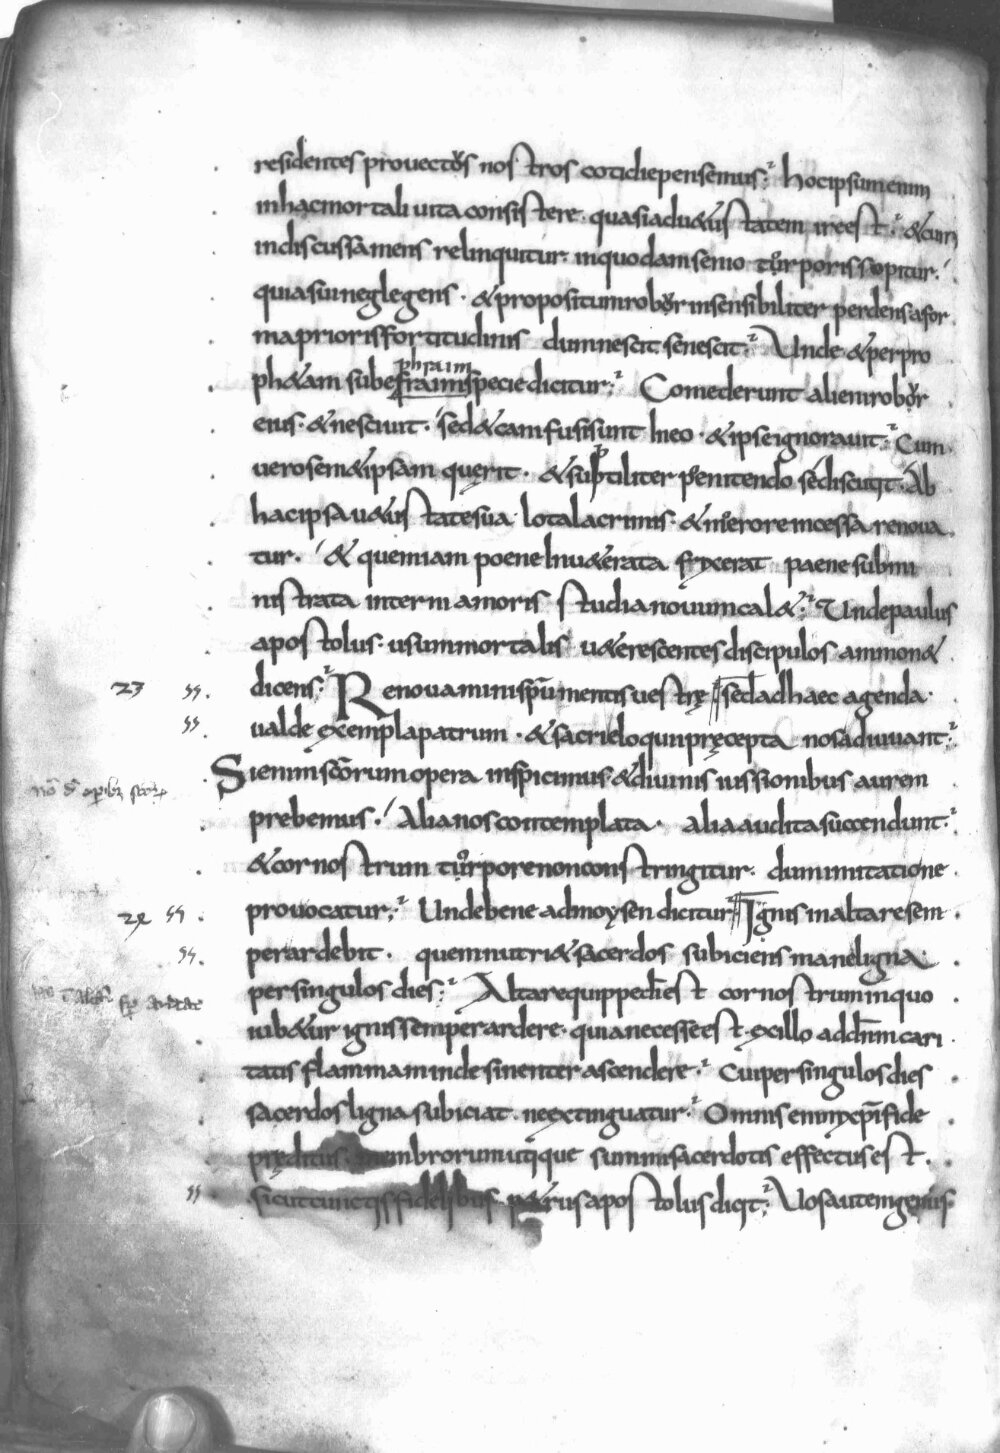 residentes prouectos nostros cotidie pensemus; hoc ipsum enim
in hac mortali uita consistere. quasi ad uetustatem ire est. & cum
indiscussa mens relinquitur. in quodam senio torporis sopitur.
quia sui neglegens. & propositum robor insensibiliter perdens a for
ma prioris fortitudinis dum nescit senescit; Unde & per pro
phrum
ph&am sub efraim specie dicitur; Comederunt alieni robor
eius. & nesciuit. sed & cani fusi sunt In eo. & ipse ignorauit; Cum
uero sem&ipsam quęrit. & subtiliter penitendo se discutit. Ab
hac ipsa u&ustate sua lota lacrimis. & merore incessa renoua
tur. & quem iam poene Inu&erata fryxerat paene submi
nistrata interni amoris studia nouum cal&; Unde paulus
apostolus. usu mortalis u&erescentes discipulos ammon&
23 ss. dicens; Renouamini sp̄u mentis uestrę sed ad haec agenda.
ss. ualde exempla patrum. & sacri eloquii pręcepta nos adiuuant;
Si enim sc̄orum opera inspicimus. & diuinis iussionibus aurem
prebemus. Alia nos contemplata. alia audita succendunt;
& cor nostrum torpore non constringitur. dum imitatione
24 ss. prouocatur; Unde bene ad moysen dicitur Ignis in altare sem
ss. per ardebit. quem nutri& sacerdos subiciens mane ligna
per singulos dies; Altare quippe d̄i est cor nostrum in quo
iub&ur ignis semper ardere. quia necesse est ex illo ad dn̄m cari
tatis flammam indesinenter ascendere. Cui per singulos dies
sacerdos ligna subiciat. ne extinguatur. Omnis enim xp̄i fide
pręditus. membrorum utique summi sacerdotis effectus est.
ss. sicut cunctis fidelibus p&rus apostolus dicit; Uos autem genus